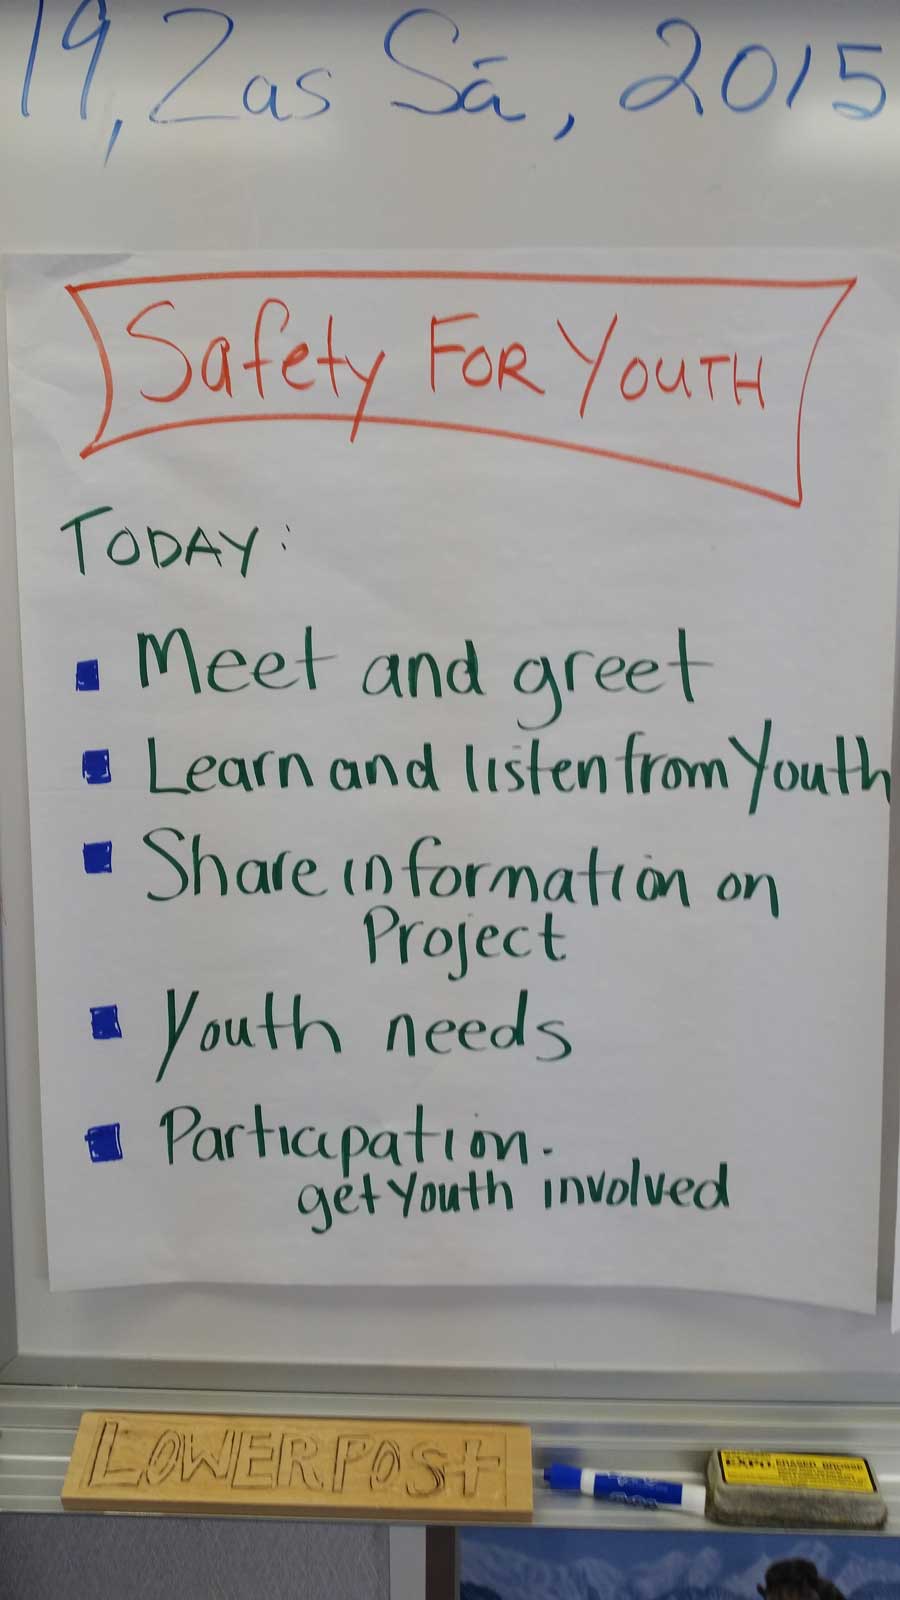 19, Zas Sā, 2015
Safety FOR YOUTH
TODAY:
Meet and greet
Learn and listen from Youth
Share information on
Project
Youth needs
Participation.
get Youth involved
LOWERPOSt
EXPO ERASER